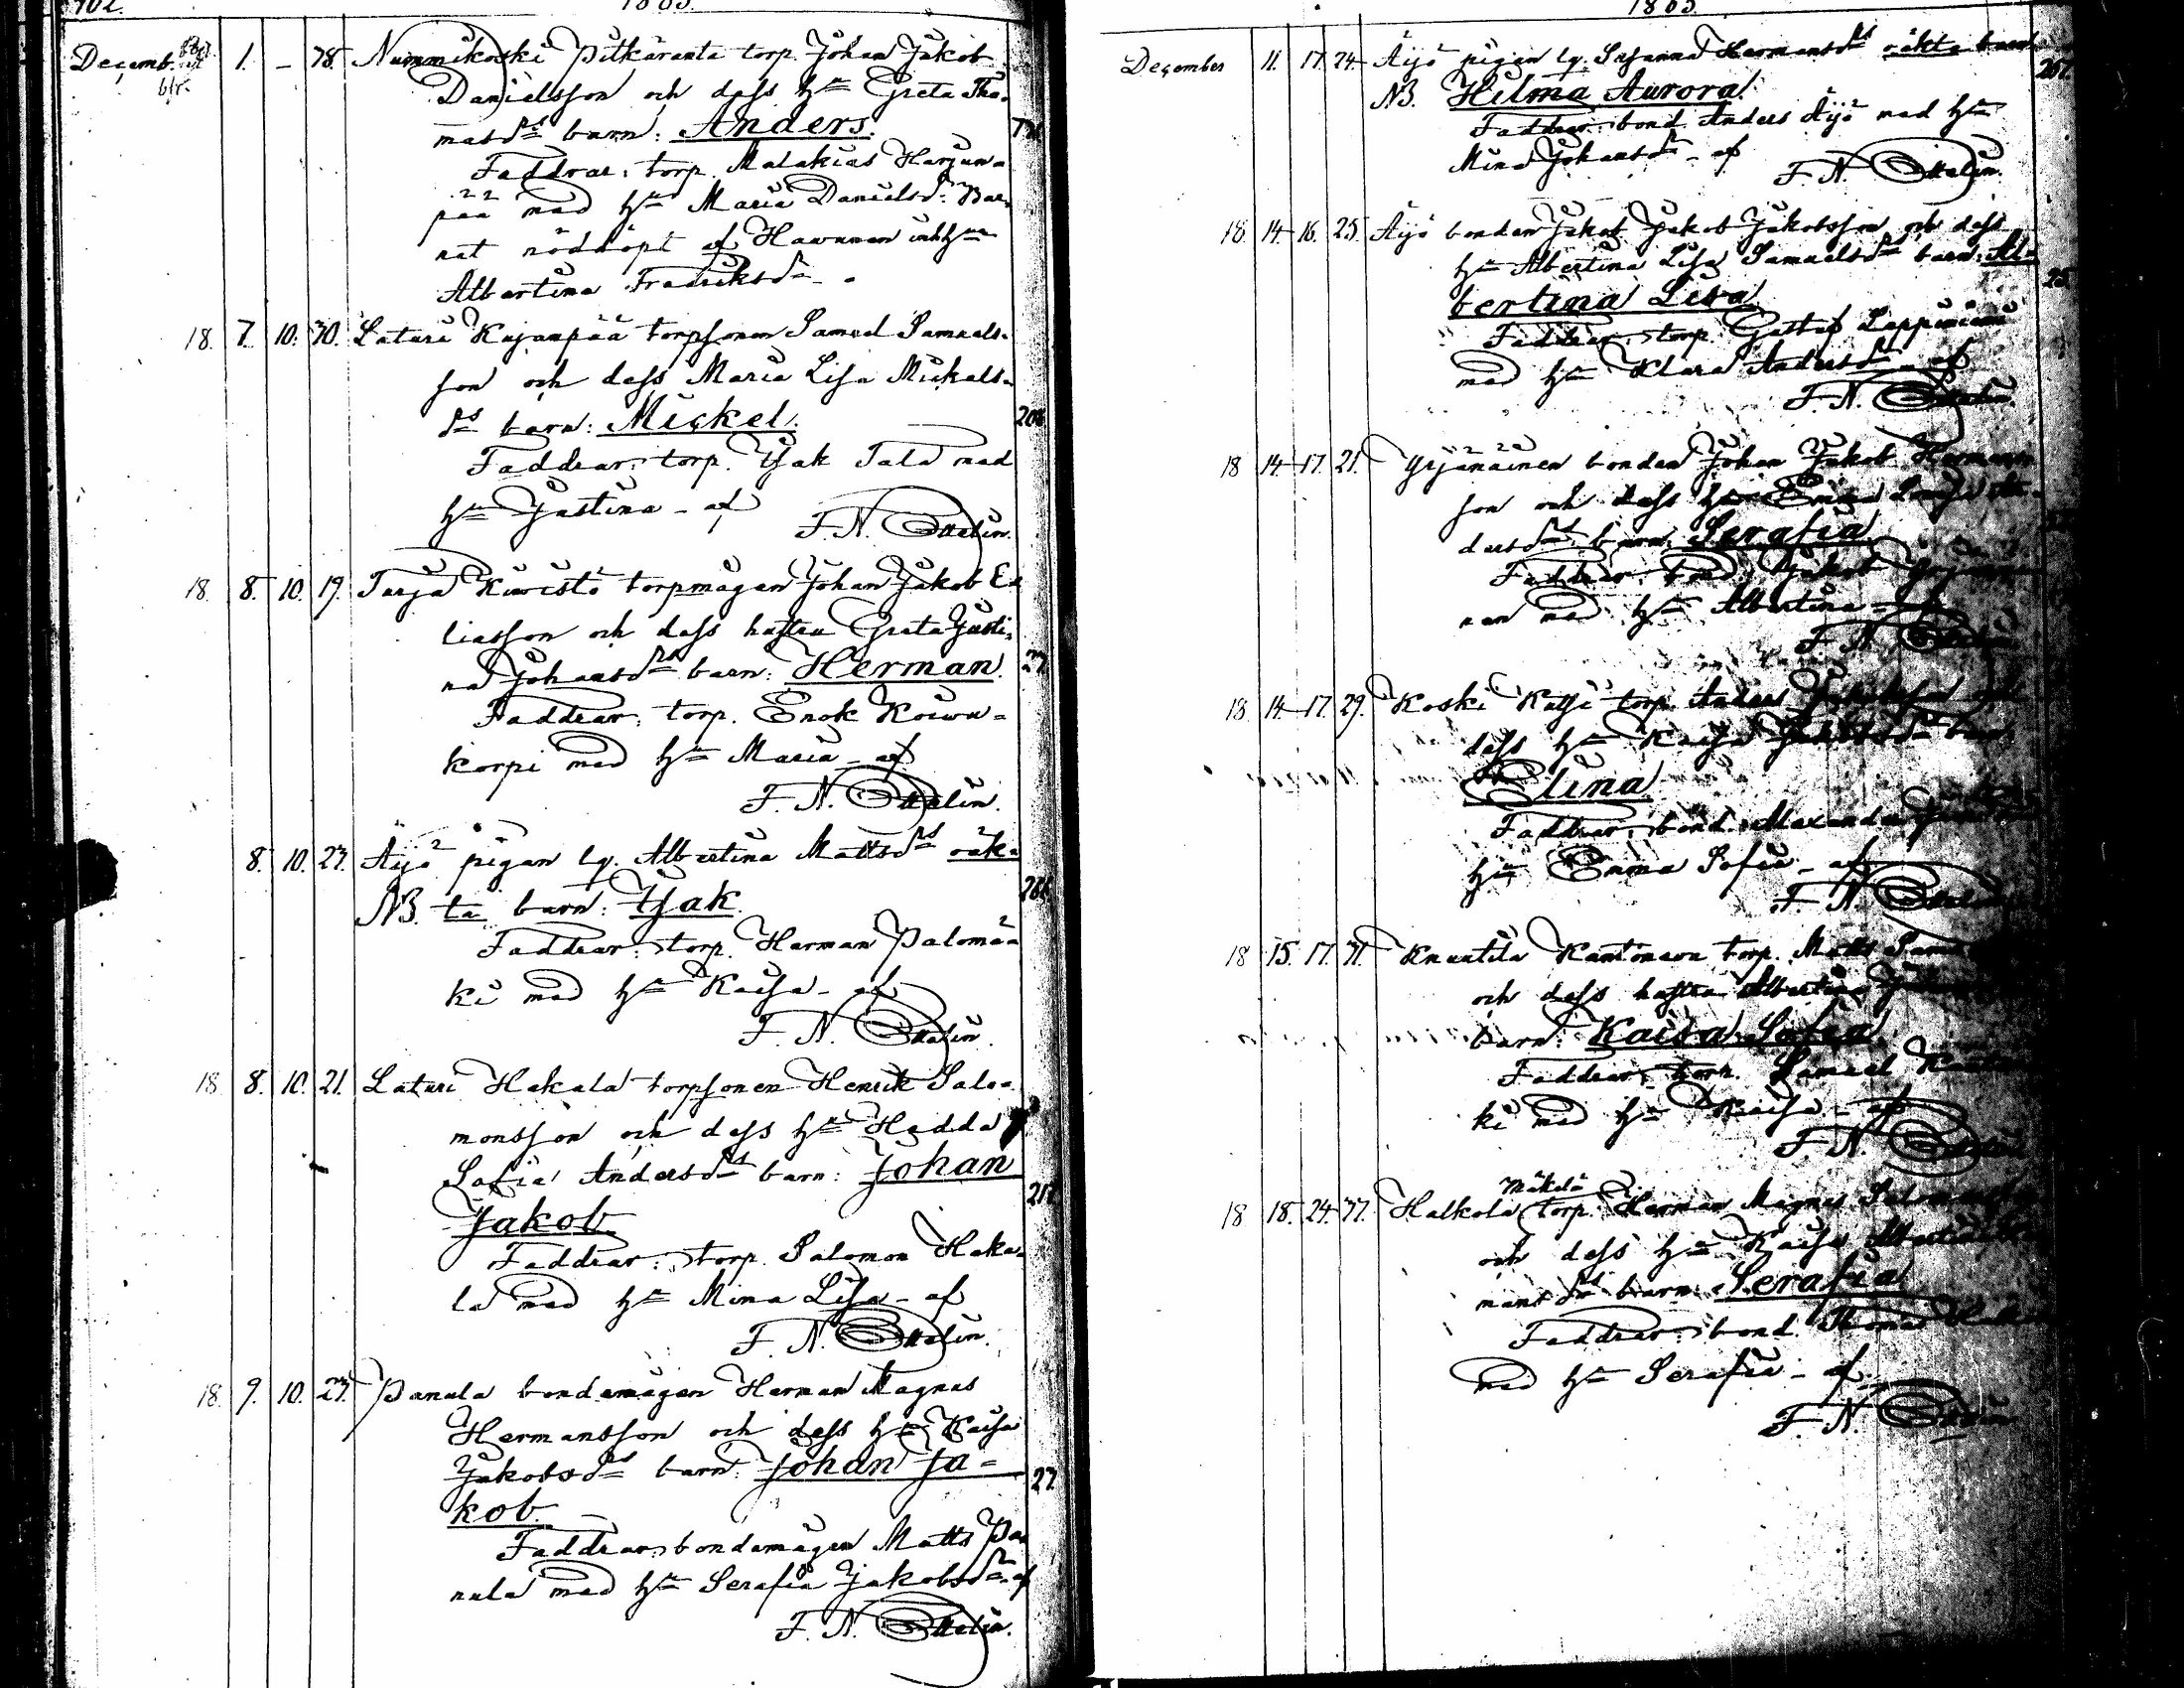 102.
1865.
Decemb. 1. – 38. Nummikoski Pitkäranta torp. Johan Jakob
Danielsson och dess hu Greta Tho-
masdr barn: Anders.
Faddrar: torp. Malakias Harjun-
pää med hu Maria Danielsdr. Bar-
net nöddöpt af Hawunen inhhu
Albertina Fredriksdr
18. 7. 10. 30. Laturi Kujanpää torpsonen Samuel Samuels-
son och dess Maria Lisa Mickels-
dr barn: Mickel. 206
Faddrar: torp. Isak Tala med
hu Justina – af
F. N. Ottelin.
18. 8. 10. 19. Tarja Kiwistö torpmågen Johan Jakob E-
liasson och dess hustru Greta Justi-
na Johansdr barn: Herman. 27
Faddrar: torp. Enok Koiwu-
korpi med hu Maria – af
F. N. Ottelin.
8. 10. 27. Äijö pigan lg. Albertina Mattsdr oäk-
NB. ta barn: Isak. 266
Faddrar: torp. Herman Palomä-
ki med hu Kaisa – af
F. N. Ottelin.
18 8. 10. 21. Laturi Hakala torpsonen Henrik Salo-
monsson och dess hu Hedda
Sofia Andersdr barn: Johan
Jakob 217
Faddrar: torp. Salomon Haka-
la med hu Mina Lisa – af
F. N. Ottelin.
18. 9. 10. 27. Panula bondemågen Herman Magnus
Hermansson och dess hu Kaisa
Jakobsdr barn: Johan Ja- 27
kob.
Faddrar: bondemågen Matts Pa
nula med hu Serafia Jakobsdr. af
F. N. Ottelin.
1865.
December 11. 17. 24. Äijö pigan lg. Susanna Hermansdr oäkta barn
NB. Hilma Aurora. 267.
Faddrar: bond. Anders Äijö med hu
Mina Johansdr – af
F. N. Ottelin.
18. 14. 16. 25. Äijö bonden Jakob Jakob Jakobsson och dess
hu Albertina Lisa Samuelsdr barn: Al-
bertina Lisa 25
Faddrar: torp. Gustaf Lappiniemi
med hu Klara Andersdr – af
F. N. Ottelin.
18 14. 17. 21. Yrjänäinen bonden Johan Jakob Hermans
son och dess hu
dersdr barn: Serafia
Faddrar: bond. Jakob Yrjänäi-
nen med hu Albertina – af
F. N. Ottelin
18. 14. 17. 29. Koski Katji torp. Anders
dess hu Kaisa Jakobsdr barn
Elina
Faddrar: bond. Alexander
hu Emma Sofia – af
F. N. Ottelin
18 15. 17. 31. Knuutila Kantonen torp. Matts
och dess hustru Albertina
barn: Kaisa Sofia
Faddrar: torp. Samuel
ki med hu Kaisa – af
F. N. Ottelin
Mäkelä
18 18. 24. 37. Halkola torp. Herman Magnus
och dess hu Kaisa Albertina
mansdr barn: Serafia
Faddrar: bond. Thomas
med hu Serafia – af
F. N. Ottelin